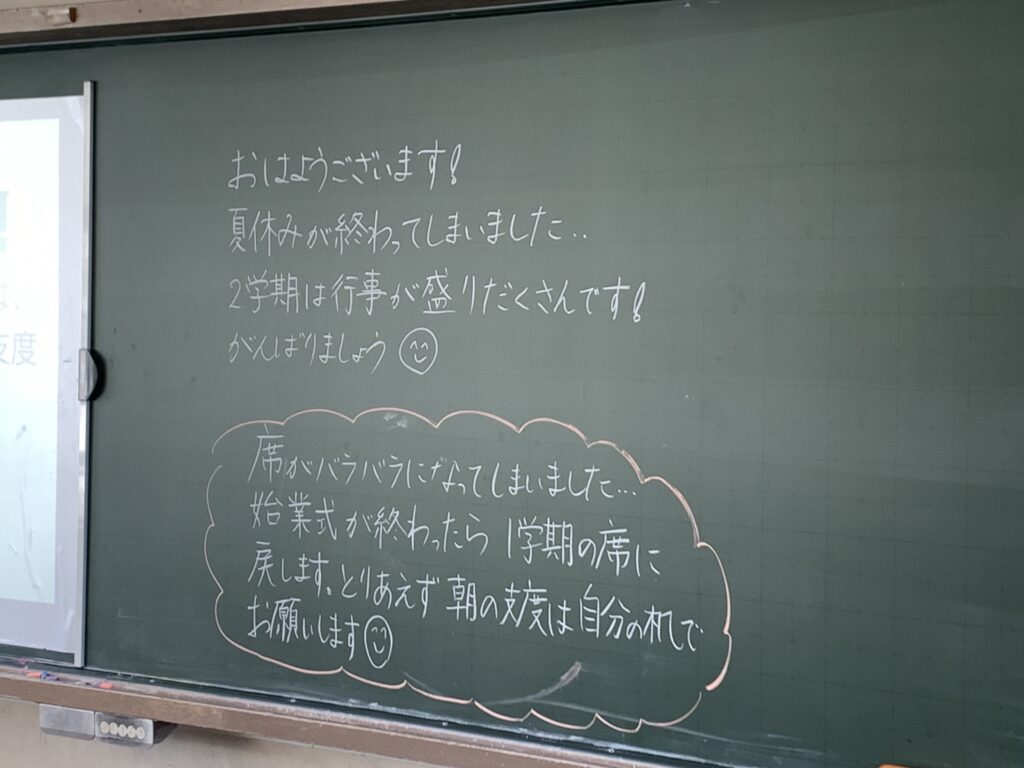 おはようございます!
夏休みが終わってしまいました..
2学期は行事が盛りだくさんです!
がんばりましょう
席がバラバラになってしまいました...
始業式が終わったら 1学期の席に
戻します。とりあえず 朝の支度は自分の机で
お願いします
は、
支度